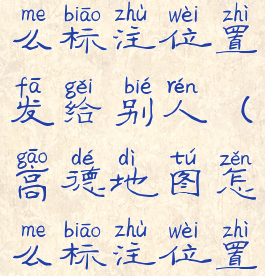 me biāo zhù wèi zhì
么标注位置
fā gěi bié rén
发给别人（
gāo dé dì tú zěn
高德地图怎
me biāo zhù wèi zhì
么标注位置